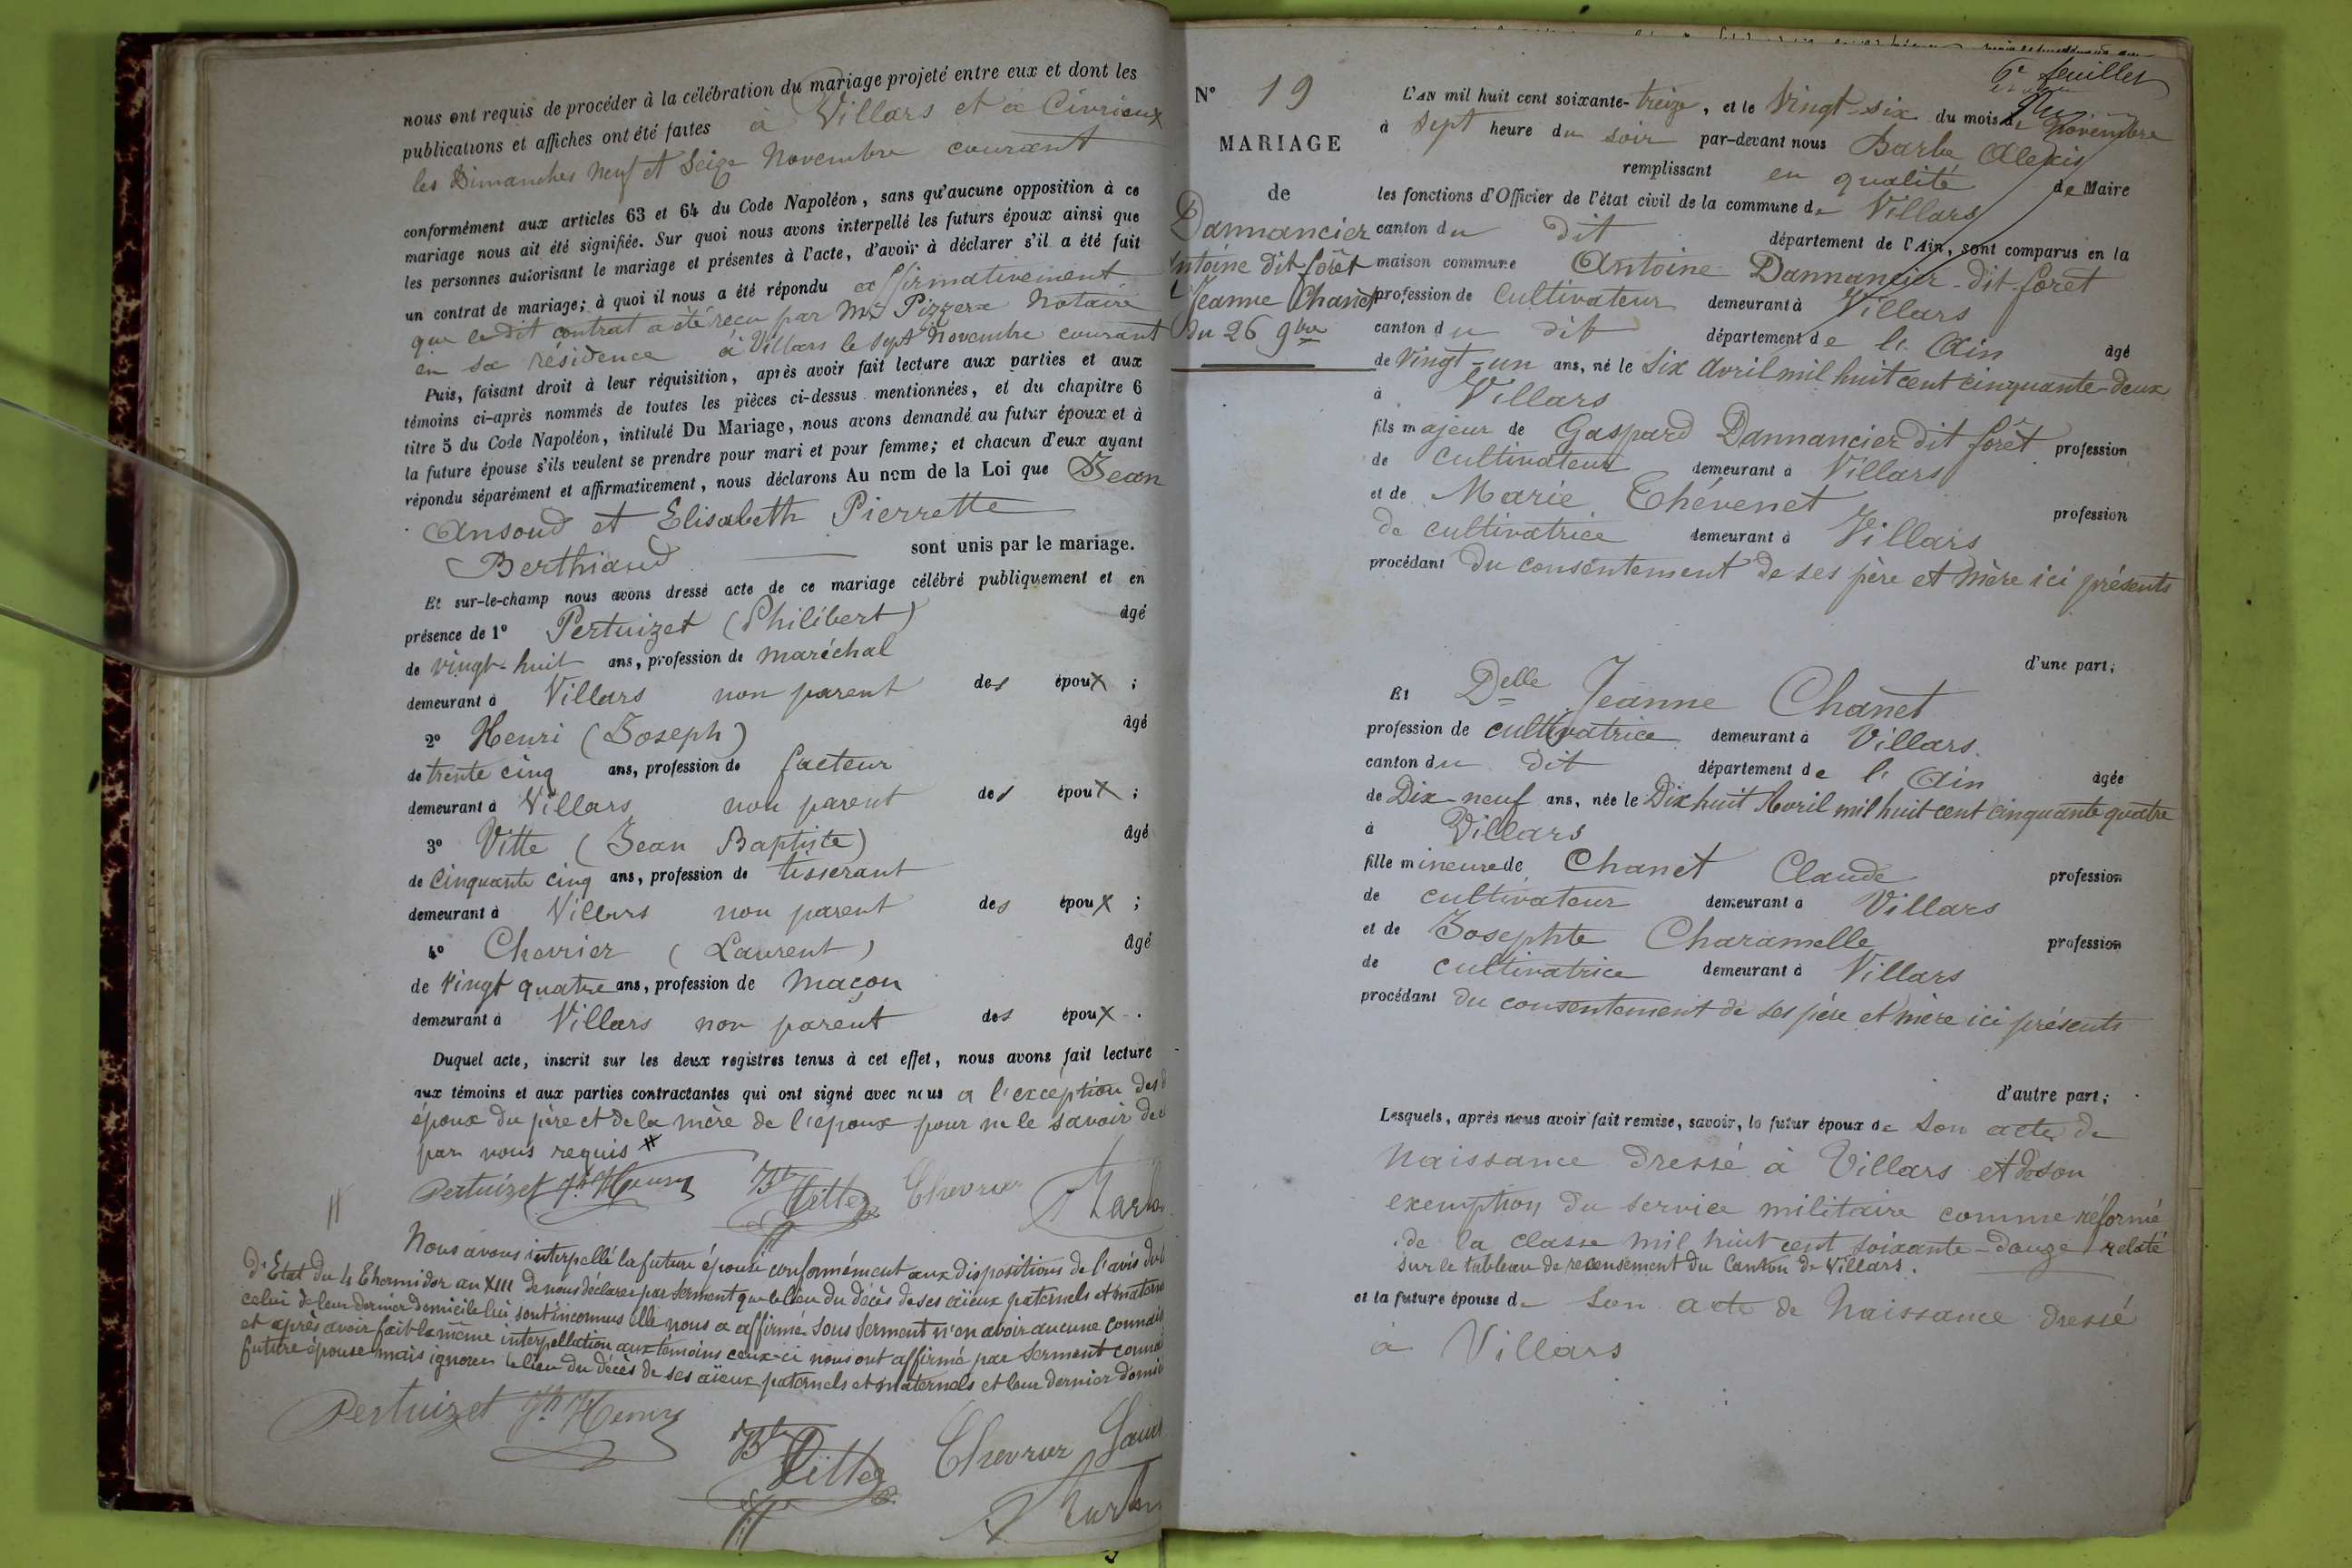 nous ont requis de procéder à la célébration du mariage projeté entre eux et dont les
publications et affiches ont été faites à Villars et à Civrieux
les Dimanches Neuf et Seize Novembre courant
conformément aux articles 63 et 64 du Code Napoléon, sans qu'aucune opposition à ce
mariage nous ait été signifiée. Sur quoi nous avons interpellé les futurs époux ainsi que
les personnes autorisant le mariage et présentes à l'acte, d'avoir à déclarer s'il a été fait
un contrat de mariage; à quoi il nous a été répondu affirmativement
que le dit contrat a été reçu par Me Pizzera Notaire
en sa résidence à Villars le sept Novembre courant
Puis, faisant droit à leur réquisition, après avoir fait lecture aux parties et aux
témoins ci-après nommés de toutes les pièces ci-dessus mentionnées, et du chapitre 6
titre 5 du Code Napoléon, intitulé Du Mariage, nous avons demandé au futur époux et à
la future épouse s'ils veulent se prendre pour mari et pour femme; et chacun d'eux ayant
répondu séparément et affirmativement, nous déclarons Au nom de la Loi que Jean
Ansoud et Elisabeth Pierrette
Berthiaud sont unis par le mariage.
Et sur-le-champ nous avons dressé acte de ce mariage célébré publiquement et en
présence de 1° Pertuizet (Philibert) âgé
de vingt-huit ans, profession de maréchal
demeurant à Villars non parent des époux ;
2° Henri (Joseph) âgé
de trente cinq ans, profession de facteur
demeurant à Villars non parent des époux ;
3° Vitte (Jean Baptiste) âgé
de Cinquante cinq ans, profession de tisserant
demeurant à Villars non parent des époux ;
4° Chevrier (Laurent) âgé
de Vingt quatre ans, profession de Maçon
demeurant à Villars non parent des époux .
Duquel acte, inscrit sur les deux registres tenus à cet effet, nous avons fait lecture
aux témoins et aux parties contractantes qui ont signé avec nous à l'exception des
époux du père et de la mère de l'époux pour ne le savoir de
par nous requis #
Pertuizet Jh Henry Bte Vitte Chevrier
#
Nous avons interpellé la future épouse conformément aux dispositions de l'avis du
d'Etat du 4 Thermidor an XIII de nous déclarer par serment que le lieu du décès de ses aïeux paternels et matern
celui de leur dernier domicile lui sont inconnus elle nous a affirmé sous serment n'en avoir aucune connais
et après avoir fait la même interpellation aux témoins ceux-ci nous ont affirmé par serment connai
future épouse mais ignorer le lieu du décès de ses aïeux paternels et maternels et leur dernier domi
Pertuizet Jh Henry
Bte Vitte Chevrier
6e feuillet
N° 19
MARIAGE
de
Dannancier
Antoine dit forêt
& Jeanne Chanet
du 26 9bre
L'AN mil huit cent soixante-treize, et le Vingt-six du mois de Novembre
à Sept heure du soir par-devant nous Barbe Alexis
remplissant en qualité de Maire
les fonctions d'Officier de l'état civil de la commune de Villars
canton du dit département de l'Ain, sont comparus en la
maison commune Antoine Dannancier-dit-forêt
profession de Cultivateur demeurant à Villars
canton du dit département de l'Ain âgé
de Vingt-un ans, né le Six Avril mil huit cent cinquante-deux
à Villars
fils majeur de Gaspard Dannancier dit forêt profession
de cultivateur demeurant à Villars
et de Marie Thévenet profession
de cultivatrice demeurant à Villars
procédant du consentement de ses père et Mère ici présents
d'une part;
Et Delle Jeanne Chanet
profession de cultivatrice demeurant à Villars
canton du dit département de l'Ain âgée
de Dix-neuf ans, née le Dix huit Avril mil huit cent cinquante quatre
à Villars
fille mineure de Chanet Claude profession
de cultivateur demeurant à Villars
et de Josephte Charamelle profession
de cultivatrice demeurant à Villars
procédant du consentement de ses père et mère ici présents
d'autre part;
Lesquels, après nous avoir fait remise, savoir, le futur époux de son acte de
Naissance dressé à Villars et de son
exemption du service militaire comme réformé
de la classe mil huit cent soixante-douze relaté
sur le tableau de recensement du Canton de Villars.
et la future épouse de son acte de Naissance dressé
à Villars